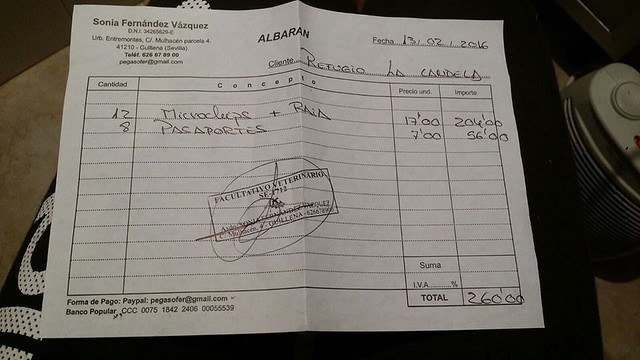 Sonia Fernández Vázquez
D.N.I. 34265629-E
Urb. Entremontes, C/. Mulhacén parcela 4.
41210 - Guillena (Sevilla)
Teléf. 626 67 89 00
pegasofer@gmail.com
ALBARÁN
Fecha 13/02/2016
Cliente REFUGIO LA CANDELA
Cantidad Concepto Precio und. Importe
12 Microchips + RAIA 17'00 204'00
8 PASAPORTES 7'00 56'00
FACULTATIVO VETERINARIO
SE-1712
SONIA FERNANDEZ VAZQUEZ
GUILLENA - 626678900
Suma
I.V.A. %
TOTAL 260'00
Forma de Pago: Paypal: pegasofer@gmail.com
Banco Popular CCC 0075 1842 2406 00055539